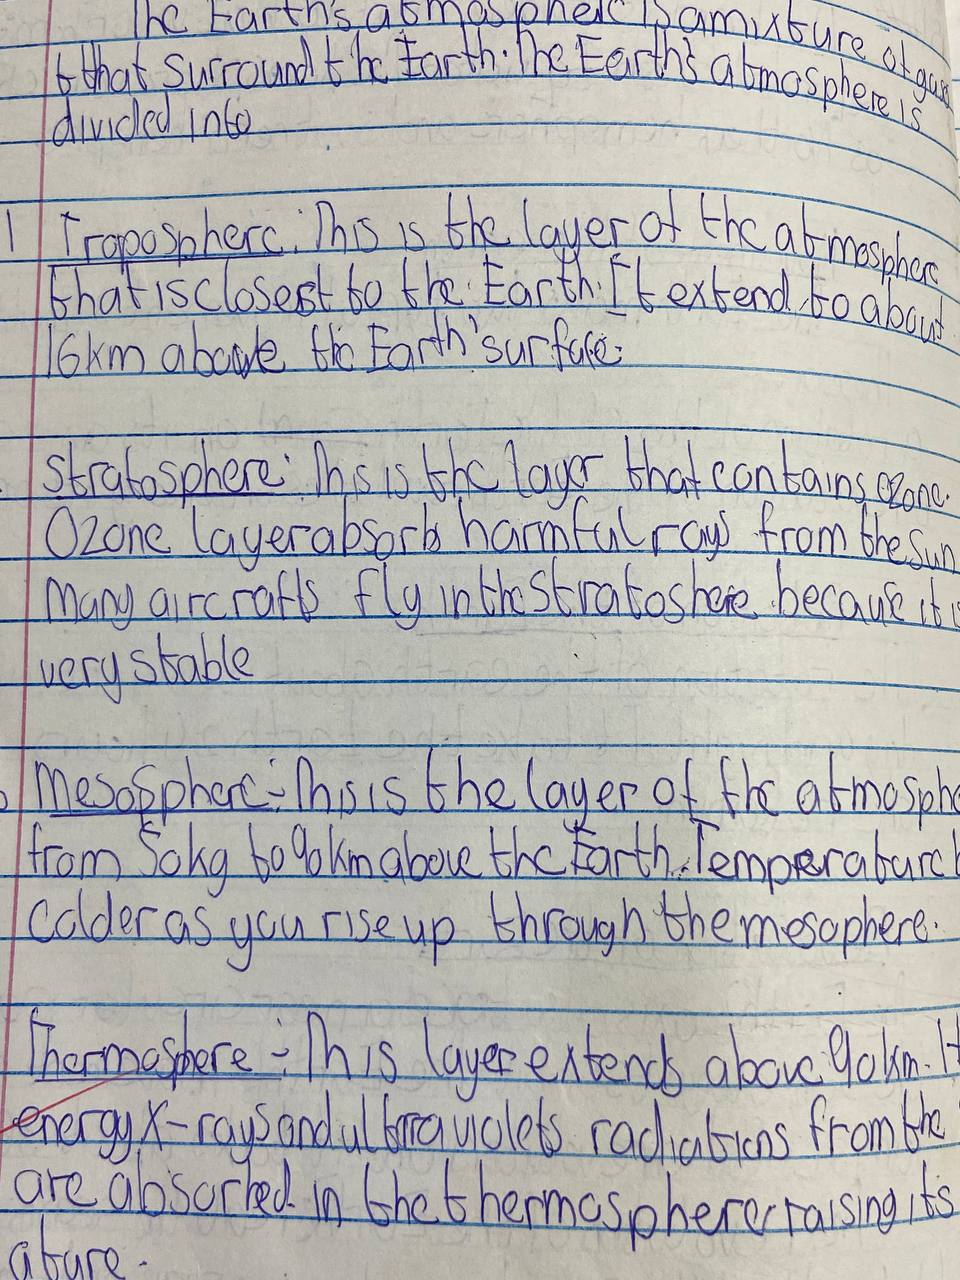 The Earth's atmosphere is a mixture of gas
that surround the Earth. The Earth's atmosphere is
divided into
1 Troposphere: This is the layer of the atmosphere
that is closest to the Earth. It extend to about
16km above the Earth's surface.
Stratosphere: This is the layer that contains ozone.
Ozone layer absorb harmful rays from the sun
Many aircrafts fly in the Stratoshere because it is
very stable
Mesosphere:- This is the layer of the atmosphe
from 50kg to 90km above the Earth. Temperature b
Colder as you rise up through the mesophere.
Thermosphere:- This layer extends above 90km. H
energy X-rays and ultraviolets radiations from the
are absorbed in the thermosphere raising its
ature.